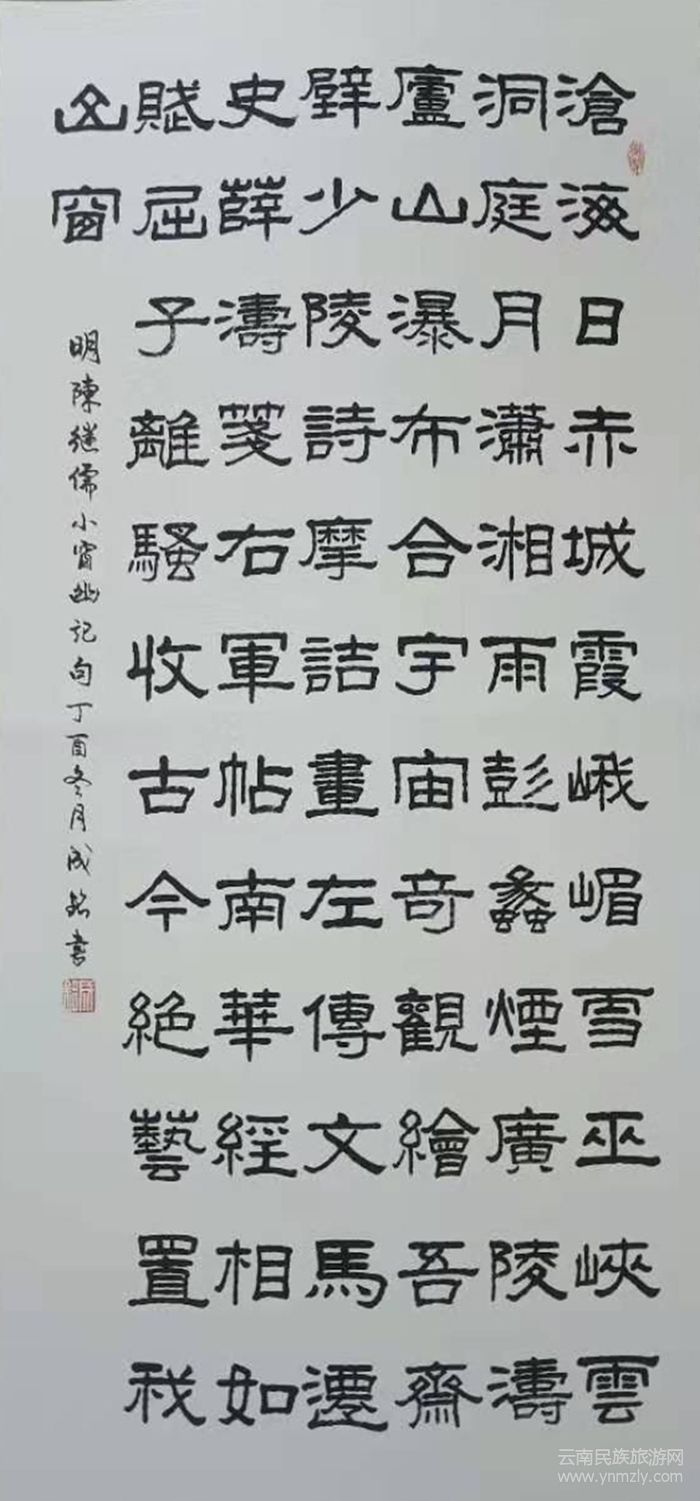 滄海日赤城霞峨嵋雪巫峽雲
洞庭月瀟湘雨彭蠡煙廣陵濤
廬山瀑布合宇宙奇觀繪吾齋
壁少陵詩摩詰畫左傳文馬遷
史薛濤箋右軍帖南華經相如
賦屈子離騷收古今絕藝置我
山窗
明陳继儒小窗幽记句丁酉冬月成銘書
云南民族旅游网
www.ynmzly.com